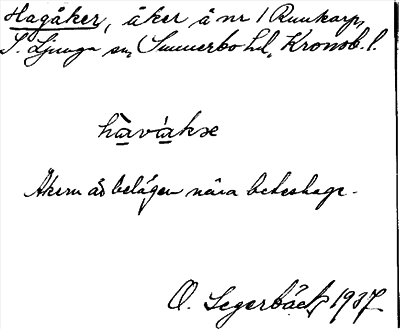 Hagåker, åker å nr 1 Runkarp,
S. Ljunga sn, Sunnerbo hd, Kronob. l.
Åkern är belägen nära beteshage.
O. Segerbäck 1937